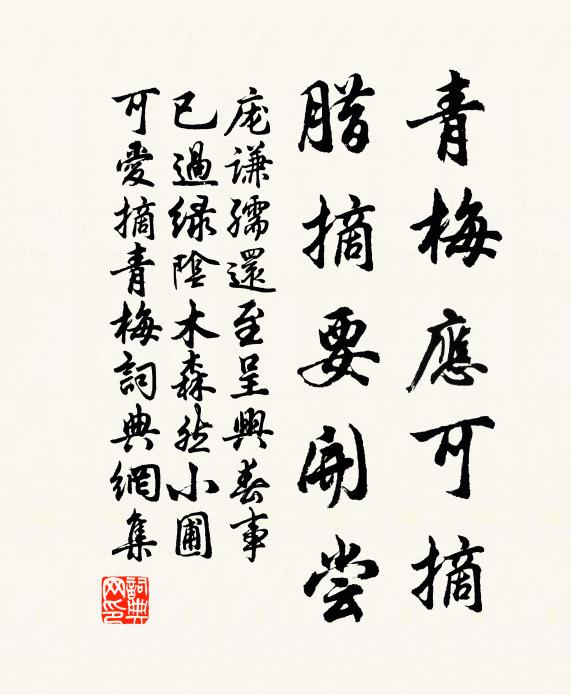 青梅應可摘
腊摘要開嘗
庞謙孺還至呈興春事
已過緑陰木森然小圃
可愛摘青梅詞典網集
詞典
网印